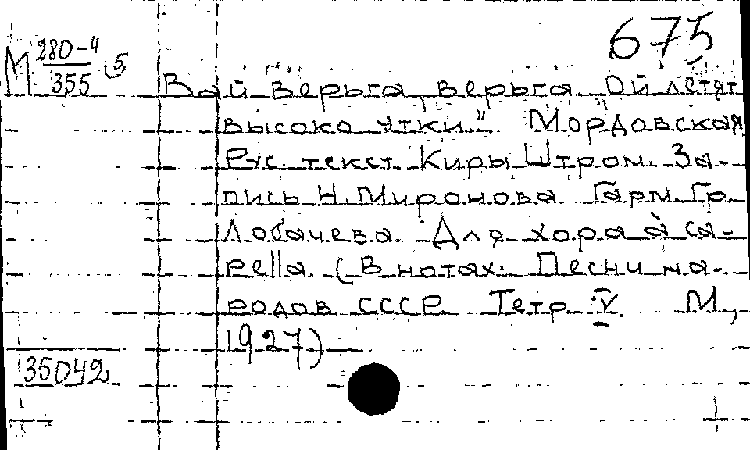 675
М 280-4/355 (5)
Вай верьга, верьга "Ой летят
высоко утки." Мордовская
Рус. текст Киры Штром. За-
пись Н. Миронова Гарм. Гр.
Лобачева Для хора à ca-
pella. (В нотах: Песни на-
родов СССР Тетр. V. М,
1927)
35042